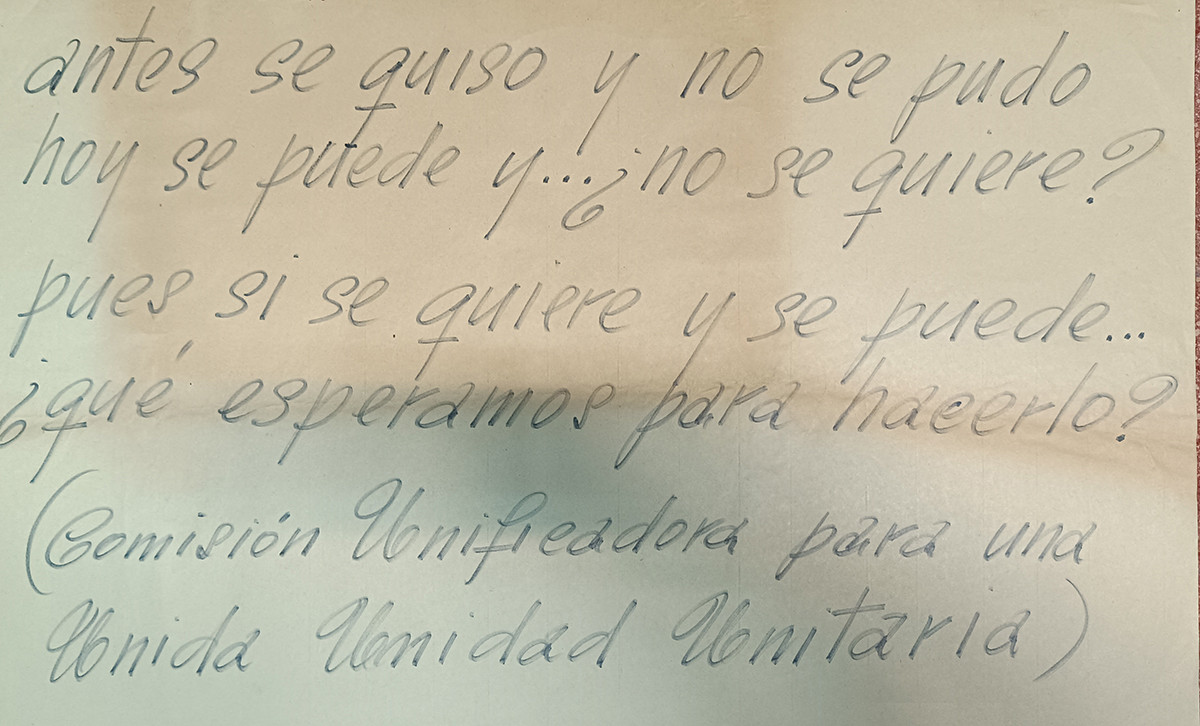 antes se quiso y no se pudo
hoy se puede y...¿no se quiere?
pues si se quiere y se puede...
¿qué esperamos para hacerlo?
(Comisión Unificadora para una
Unida Unidad Unitaria)